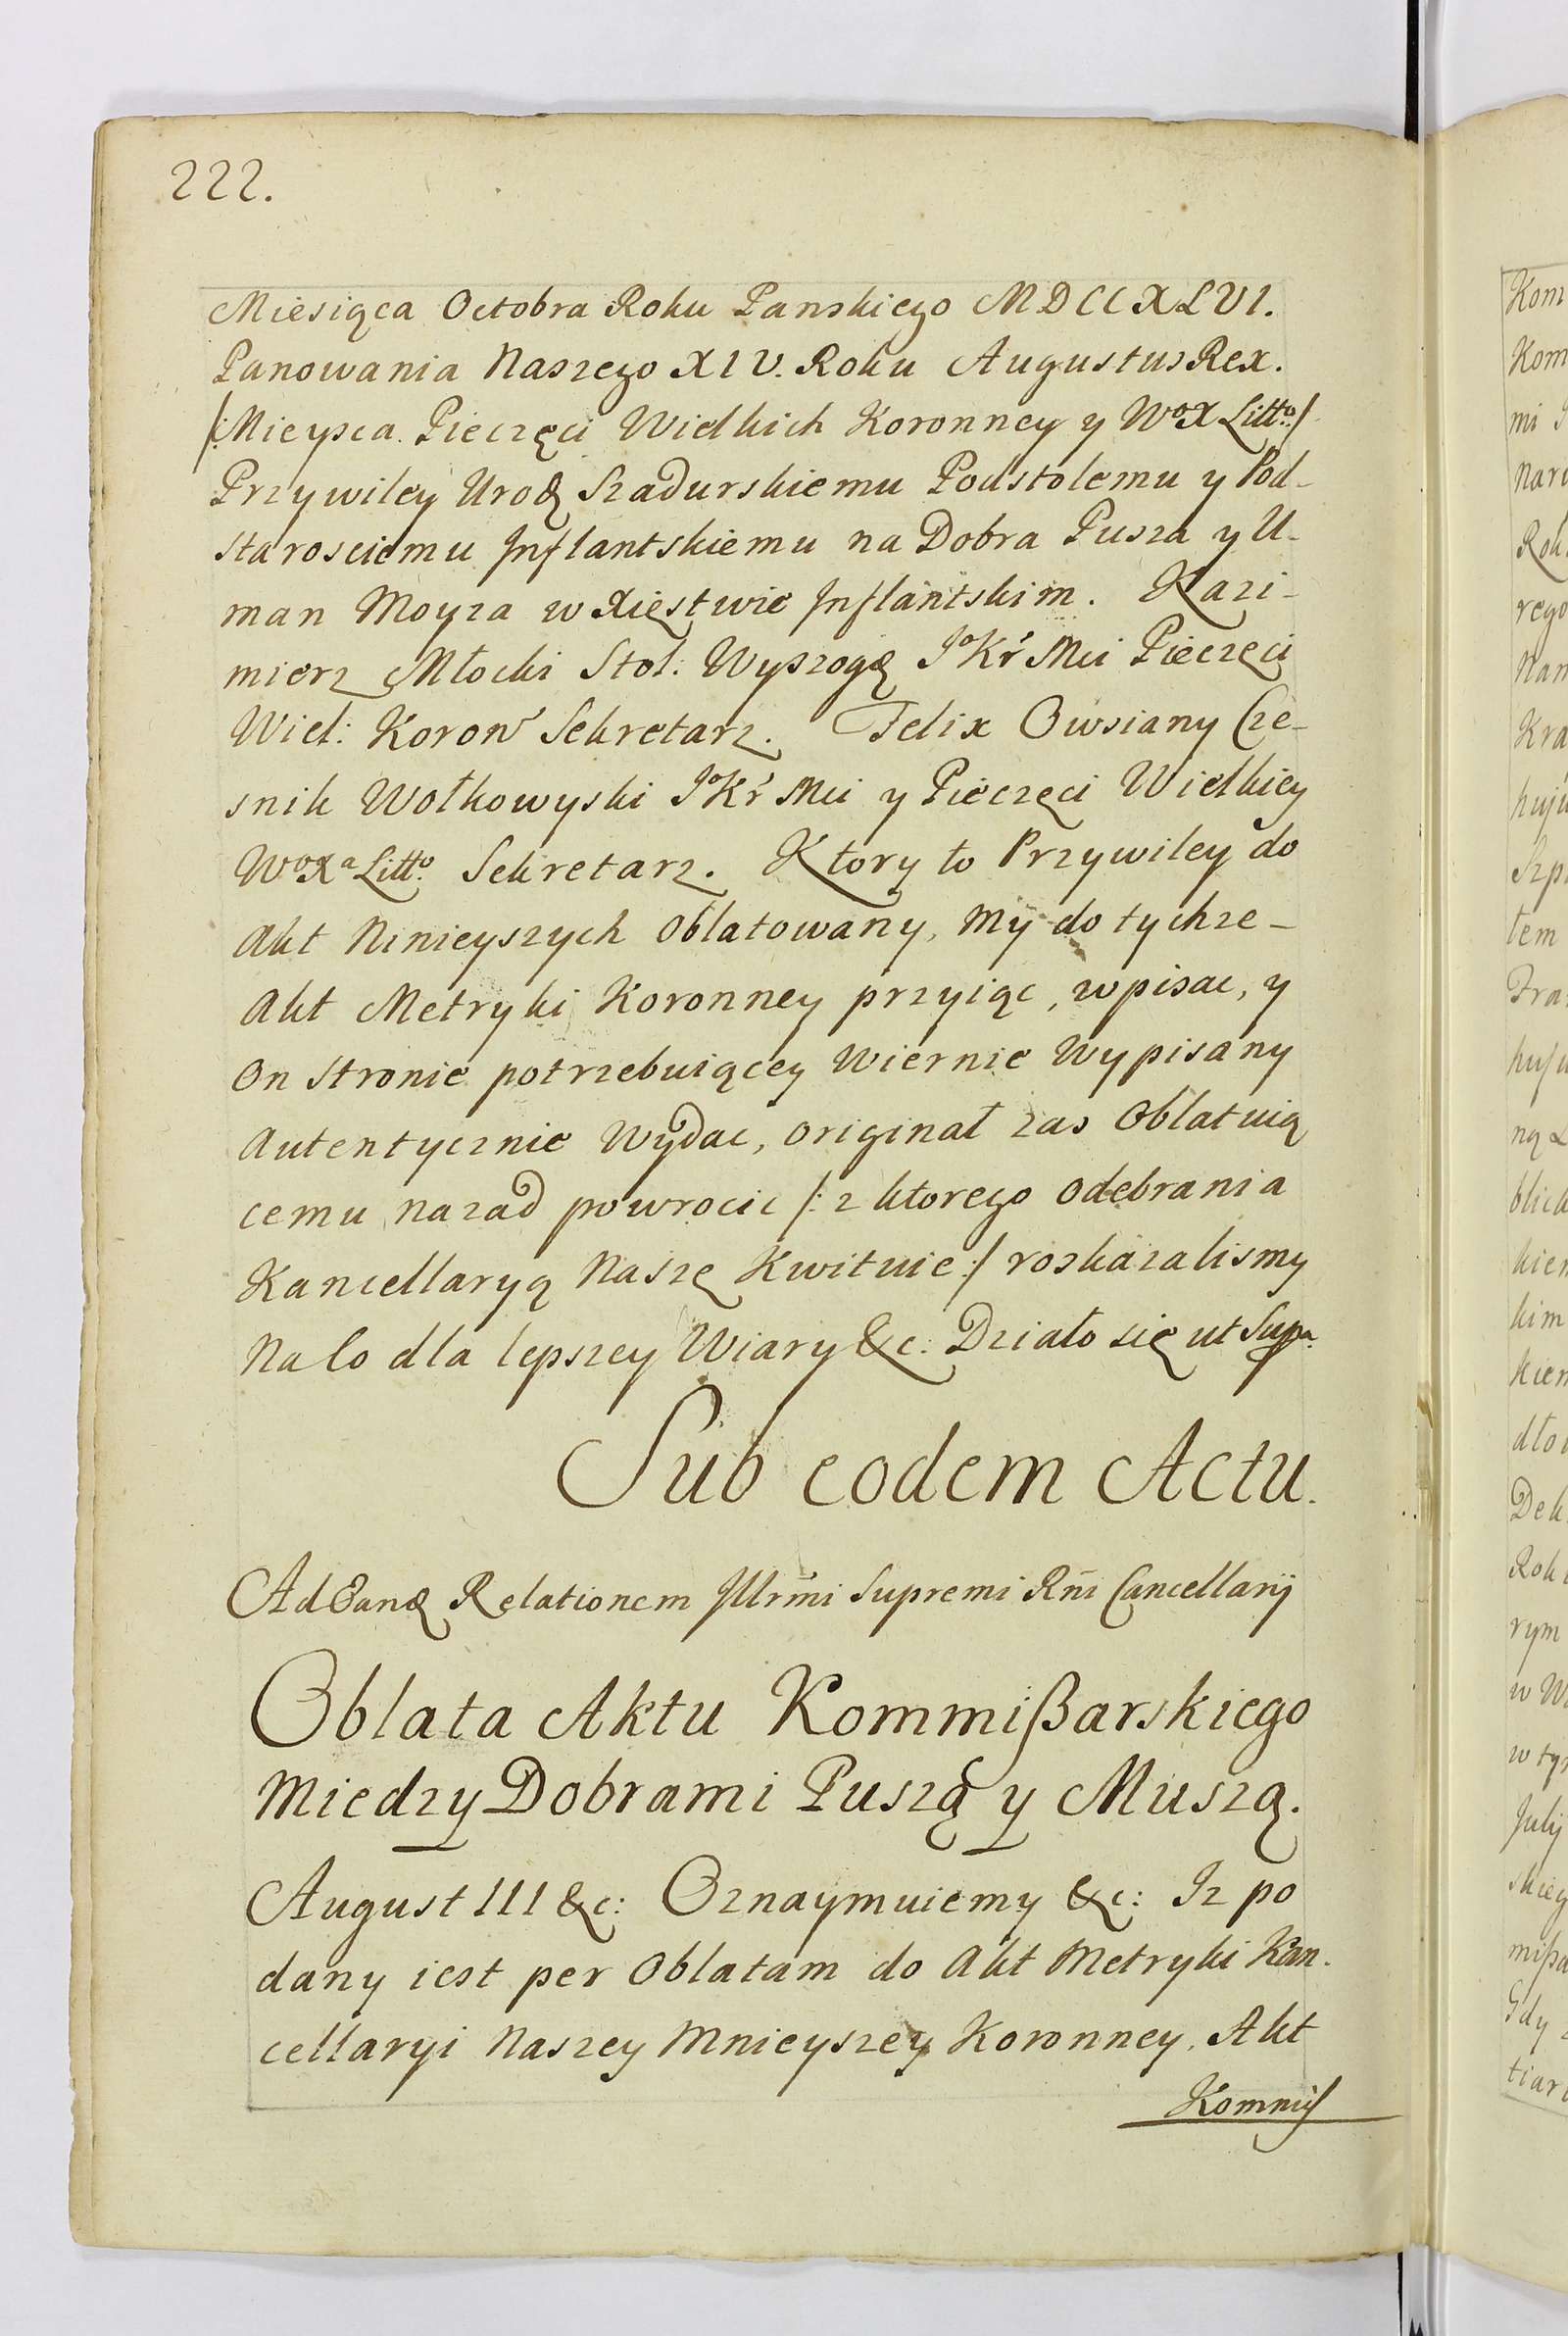 222.
Miesiąca Octobra Roku Panskiego MDCCXLVI.
Panowania Naszego XIV. Roku Augustus Rex.
/:Mieysca Pieczęci Wielkich Koronney y WoX Litto:/
Przywiley Urodz Szadurskiemu Podstolemu y Pod-
starosciemu Inflantskiemu na Dobra Pusza y U-
man Moyza w Xięstwie Inflantskim. Kazi-
mierz Młocki Stol: Wyszogdz JoKr Mci Pieczęci
Wiel: Koron Sekretarz. Felix Owsiany Cze-
snik Wołkowyski JoKr Mci y Pieczęci Wielkiey
WoXa Litto. Sekretarz. Ktory to Przywiley do
Akt Ninieyszych Oblatowany, My do tychze-
Akt Metryki Koronney przyiąc, wpisac, y
On Stronie potrzebuiącey Wiernie Wypisany
Autentycznie Wydac, originał zas Oblatuią
cemu nazad powrocic /: z ktorego odebrania
Kancellaryą Naszę Kwituie:/ roskazalismy
Na co dla lepszey Wiary &c: Działo się ut Supa.
Sub eodem Actu.
Ad Eandz Relationem Illrmi Supremi Rni Cancellarij
Oblata Aktu Kommißarskiego
Miedzy Dobrami Puszą y Muszą.
August III &c: Oznaymuiemy &c: Iz po
dany iest per Oblatam do Akt Metryki Kan.
cellaryi Naszey Mnieyszey Koronney. Akt
Kommis
Kom
Kom
mi
rego
Nam
Kra
huju
tem
Fra
huju
hien
kim
kien
dło
Dek
Rok
rym
w W
w ty
July
skiey
mißa
Gdy
tiar